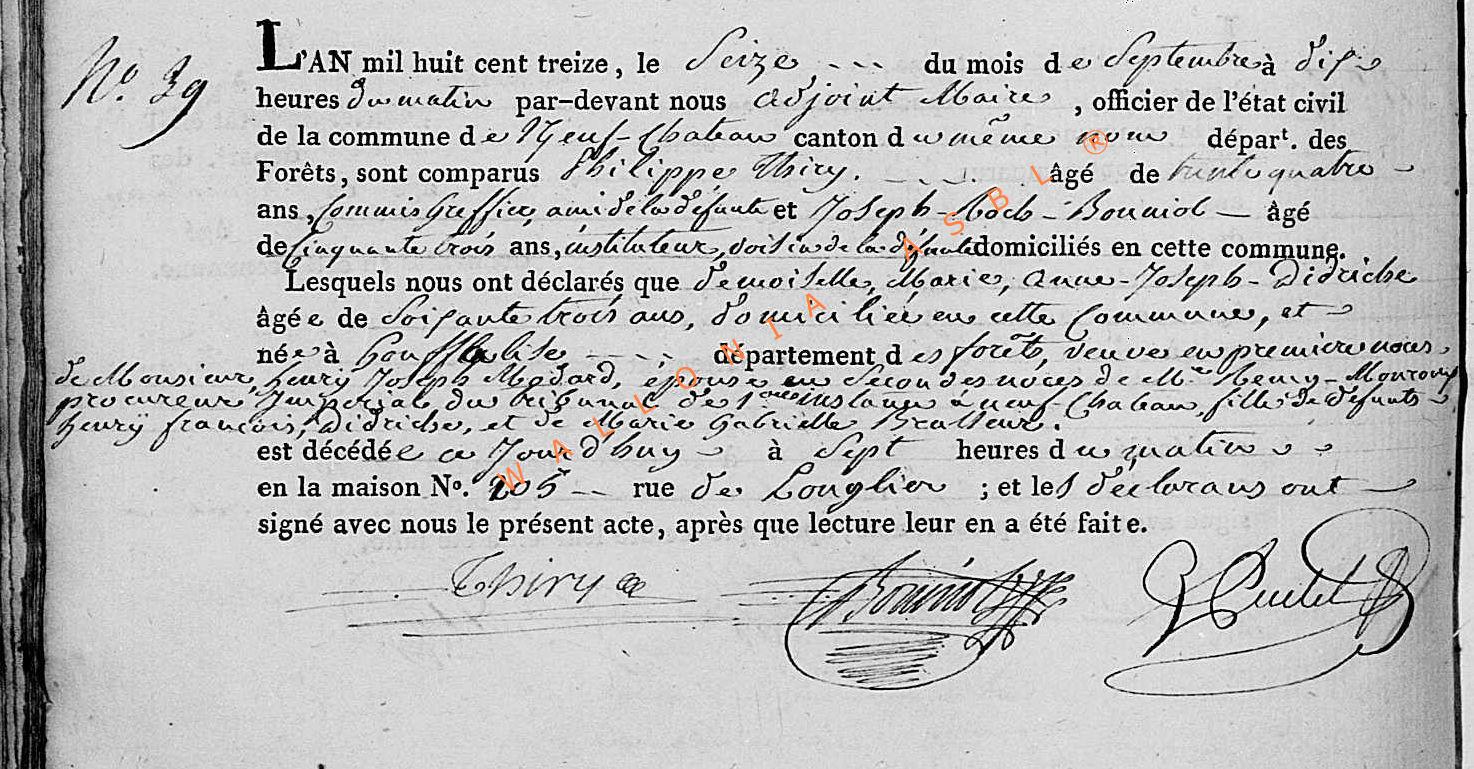 No. 39
L'AN mil huit cent treize, le Seize du mois de Septembre à dix
heures du matin par-devant nous adjoint Maire, officier de l'état civil
de la commune de Neuf-Chateau canton du même nom départ. des
Forêts, sont comparus Philippe Thiry. âgé de trente quatre
ans, Commis Greffier, ami de la défunte et Joseph-Roch-Bouniol âgé
de Cinquante trois ans, instituteur, voisin de la défunte domiciliés en cette commune.
Lesquels nous ont déclarés que demoiselle, Marie, anne-Joseph-Didriche
âgée de Soixante trois ans, domiciliée en cette Commune, et
née à houffalise département des forêts, veuve en premiere noces
de Monsieur, henry Joseph Modard, épouse en Secondes noces de Mr. Remy-
procureur Imperial du tribunal de 1ere instance a neuf-Chateau, fille de défunts
henry francois, Didriche, et de Marie Gabrielle
est décédée ce Jourd'huy à Sept heures du matin
en la maison No. 205 rue de Longlier ; et les déclarans ont
signé avec nous le présent acte, après que lecture leur en a été faite.
Thiry Bouniol
WALLONIA ASBL ®